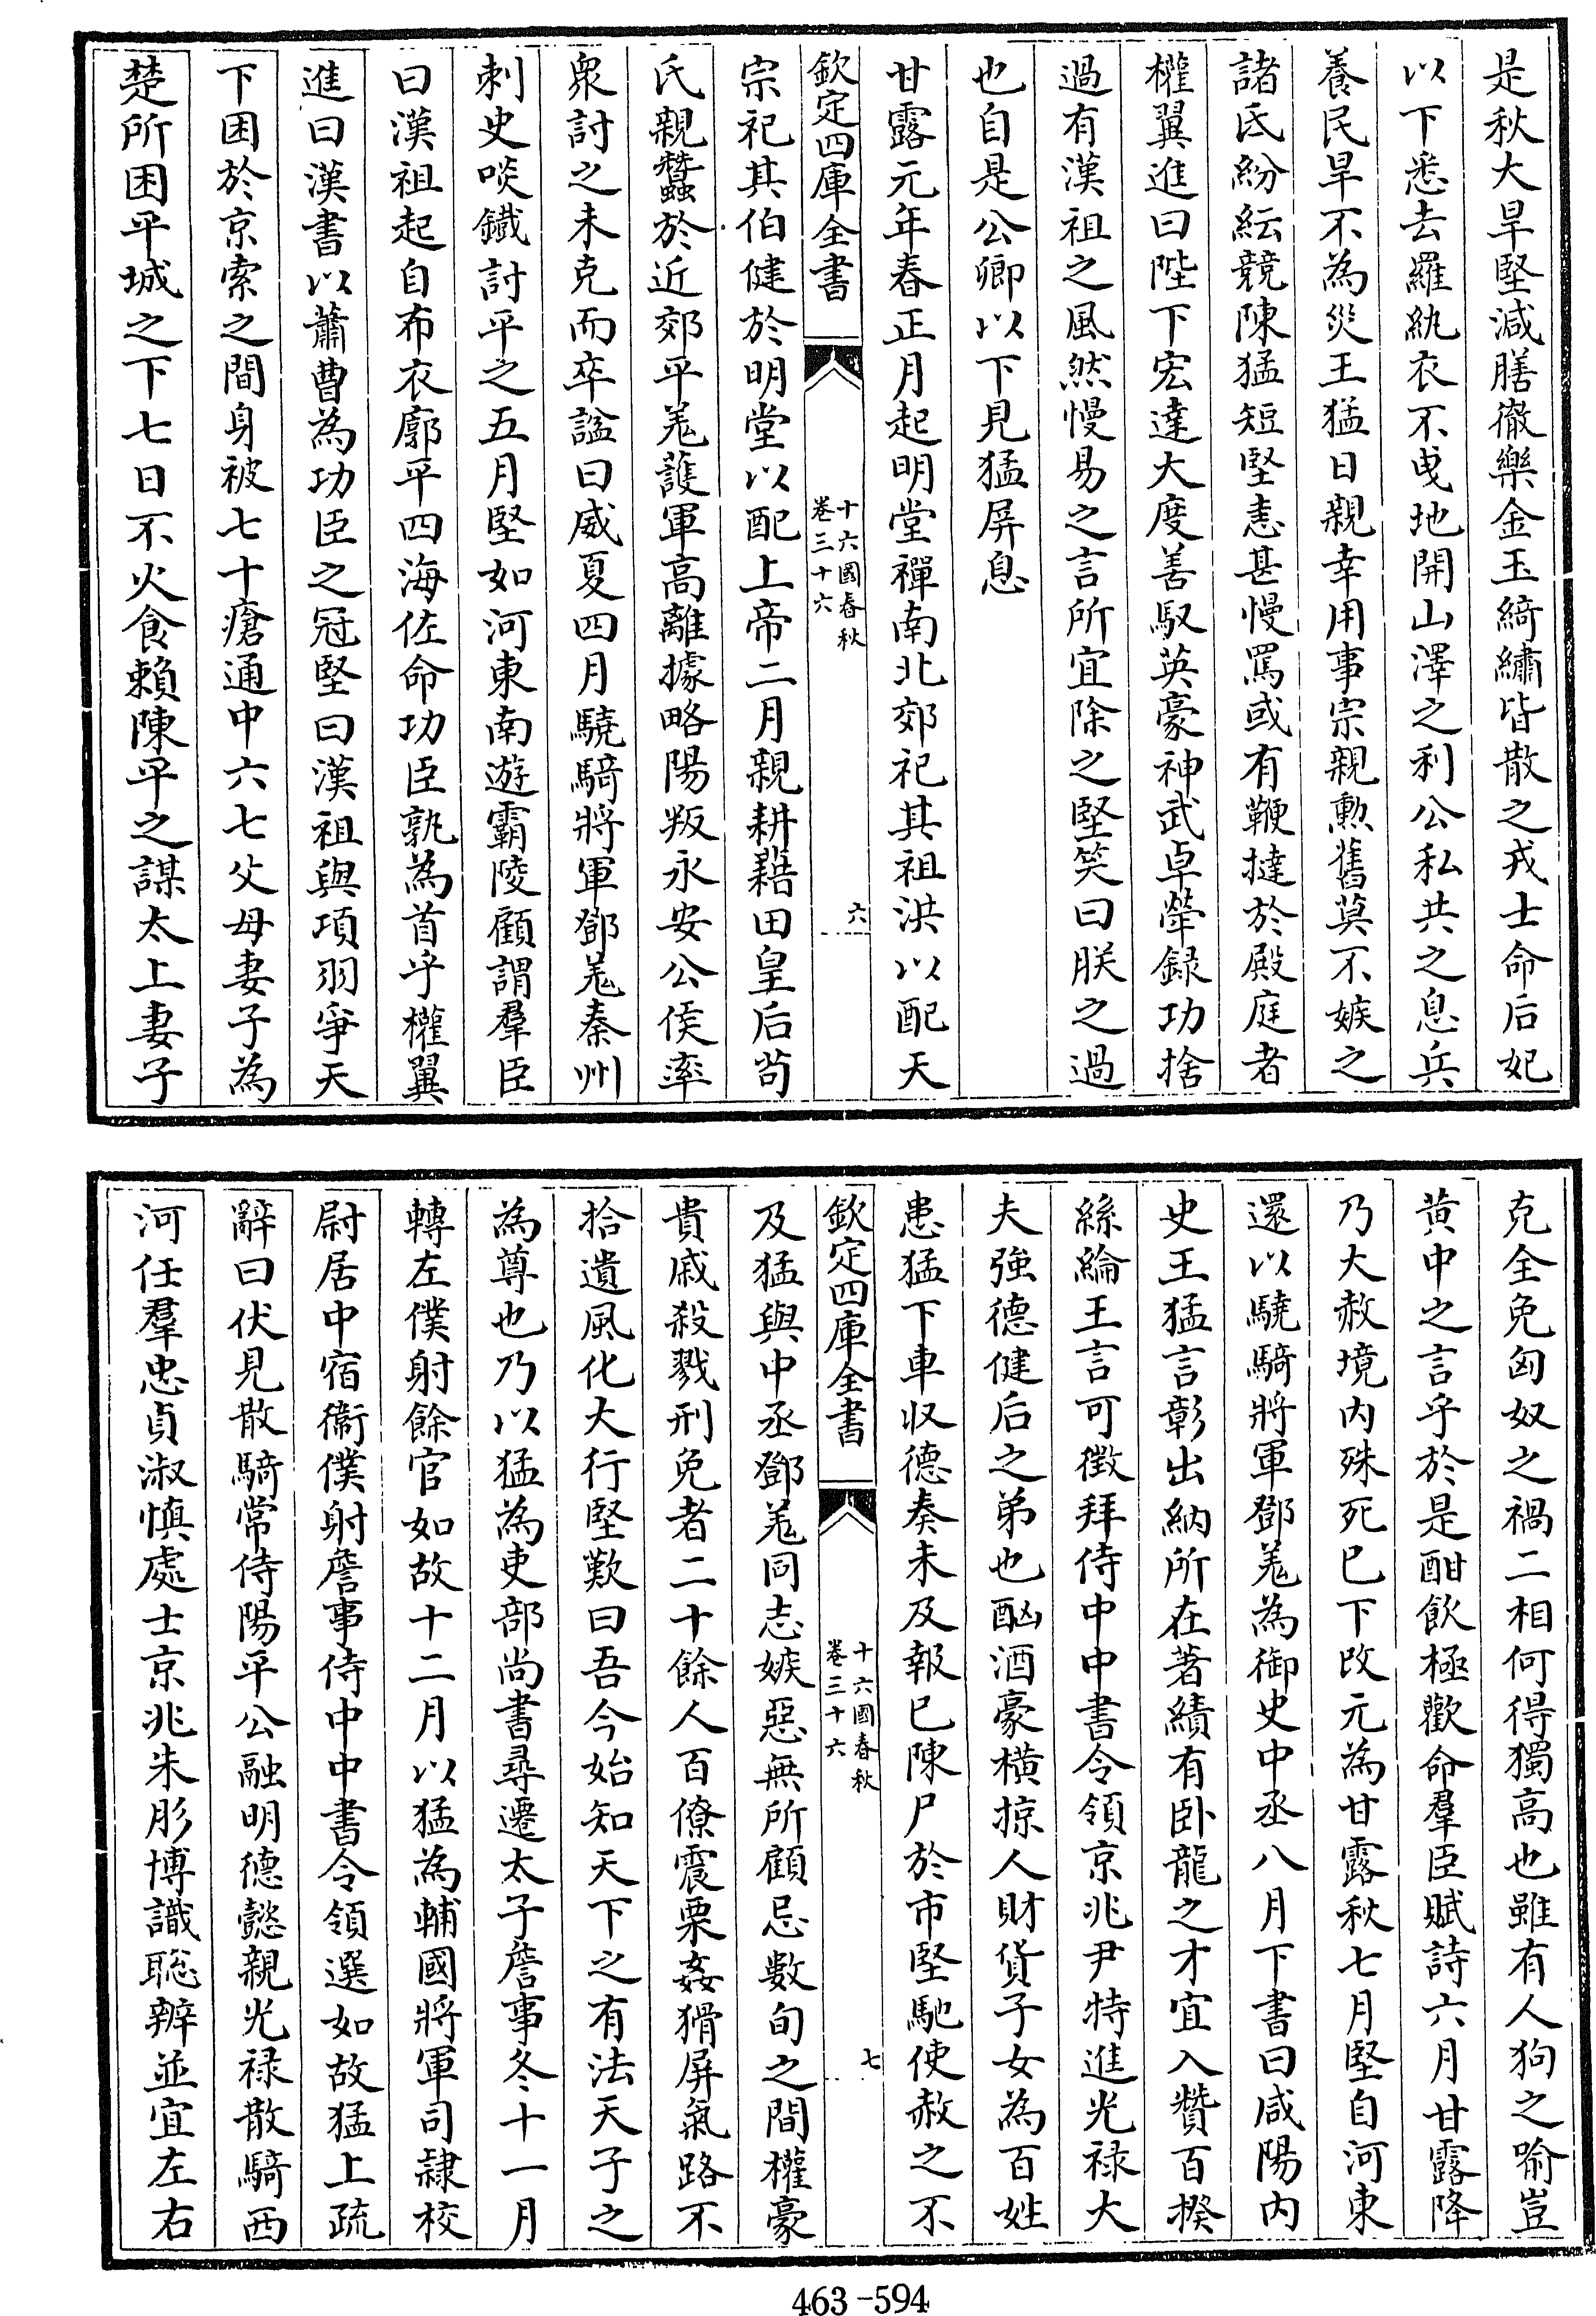 是秋大旱堅減膳徹樂金玉綺繡皆散之戎士命后妃
以下悉去羅紈衣不曵地開山澤之利公私共之息兵
養民旱不為災王猛日親幸用事宗親勲舊莫不嫉之
諸氐紛紜競陳猛短堅恚甚慢罵或有鞭撻於殿庭者
權翼進曰陛下宏達大度善馭英豪神武卓犖録功捨
過有漢祖之風然慢易之言所宜除之堅笑曰朕之過
也自是公卿以下見猛屏息
甘露元年春正月起明堂禪南北郊祀其祖洪以配天
欽定四庫全書
十六國春秋
卷三十六
六
宗祀其伯健於明堂以配上帝二月親耕藉田皇后茍
氏親蠶於近郊平羌護軍高離據略陽叛永安公侯率
衆討之未克而卒諡曰威夏四月驍騎將軍鄧羌秦州
刺史啖鐵討平之五月堅如河東南遊霸陵顧謂羣臣
曰漢祖起自布衣廓平四海佐命功臣孰為首乎權翼
進曰漢書以蕭曹為功臣之冠堅曰漢祖與項羽爭天
下困於京索之間身被七十瘡通中六七父母妻子為
楚所困平城之下七日不火食賴陳平之謀太上妻子
克全免匈奴之禍二相何得獨高也雖有人狗之喻豈
黄中之言乎於是酣飲極歡命羣臣賦詩六月甘露降
乃大赦境内殊死已下改元為甘露秋七月堅自河東
還以驍騎將軍鄧羌為御史中丞八月下書曰咸陽内
史王猛言彰出納所在著績有卧龍之才宜入贊百揆
絲綸王言可徵拜侍中中書令領京兆尹特進光禄大
夫強德健后之弟也酗酒豪横掠人財貨子女為百姓
患猛下車收德奏未及報已陳尸於市堅馳使赦之不
欽定四庫全書
十六國春秋
卷三十六
七
及猛與中丞鄧羌同志嫉惡無所顧忌數旬之間權豪
貴戚殺戮刑免者二十餘人百僚震栗姦猾屏氣路不
拾遺風化大行堅歎曰吾今始知天下之有法天子之
為尊也乃以猛為吏部尚書尋遷太子詹事冬十一月
轉左僕射餘官如故十二月以猛為輔國將軍司隸校
尉居中宿衞僕射詹事侍中中書令領選如故猛上疏
辭曰伏見散騎常侍陽平公融明德懿親光禄散騎西
河任羣忠貞淑慎處士京兆朱肜博識聡辨並宜左右
463-594